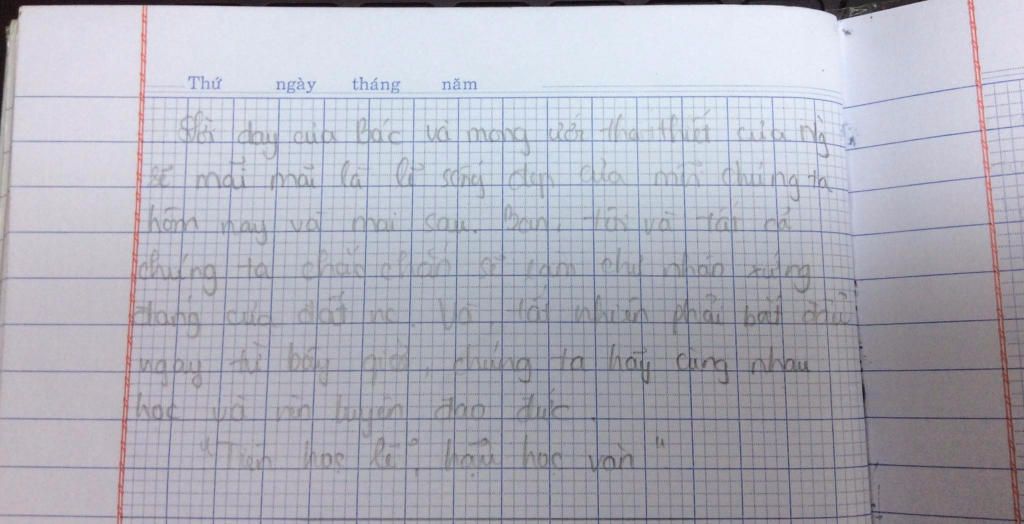 Thứ ngày tháng năm
Lời dạy của Bác và mong ước tha thiết của ng
sẽ mãi mãi là lẽ sống đẹp của mỗi chúng ta
hôm nay và mai sau. Bạn, tôi và tất cả
chúng ta chắc chắn sẽ làm chủ nhân xứng
đáng của đất nc. Và, tất nhiên phải bắt đầu
ngay từ bây giờ, chúng ta hãy cùng nhau
học và rèn luyện đạo đức.
"Tiên học lễ, hậu học văn"